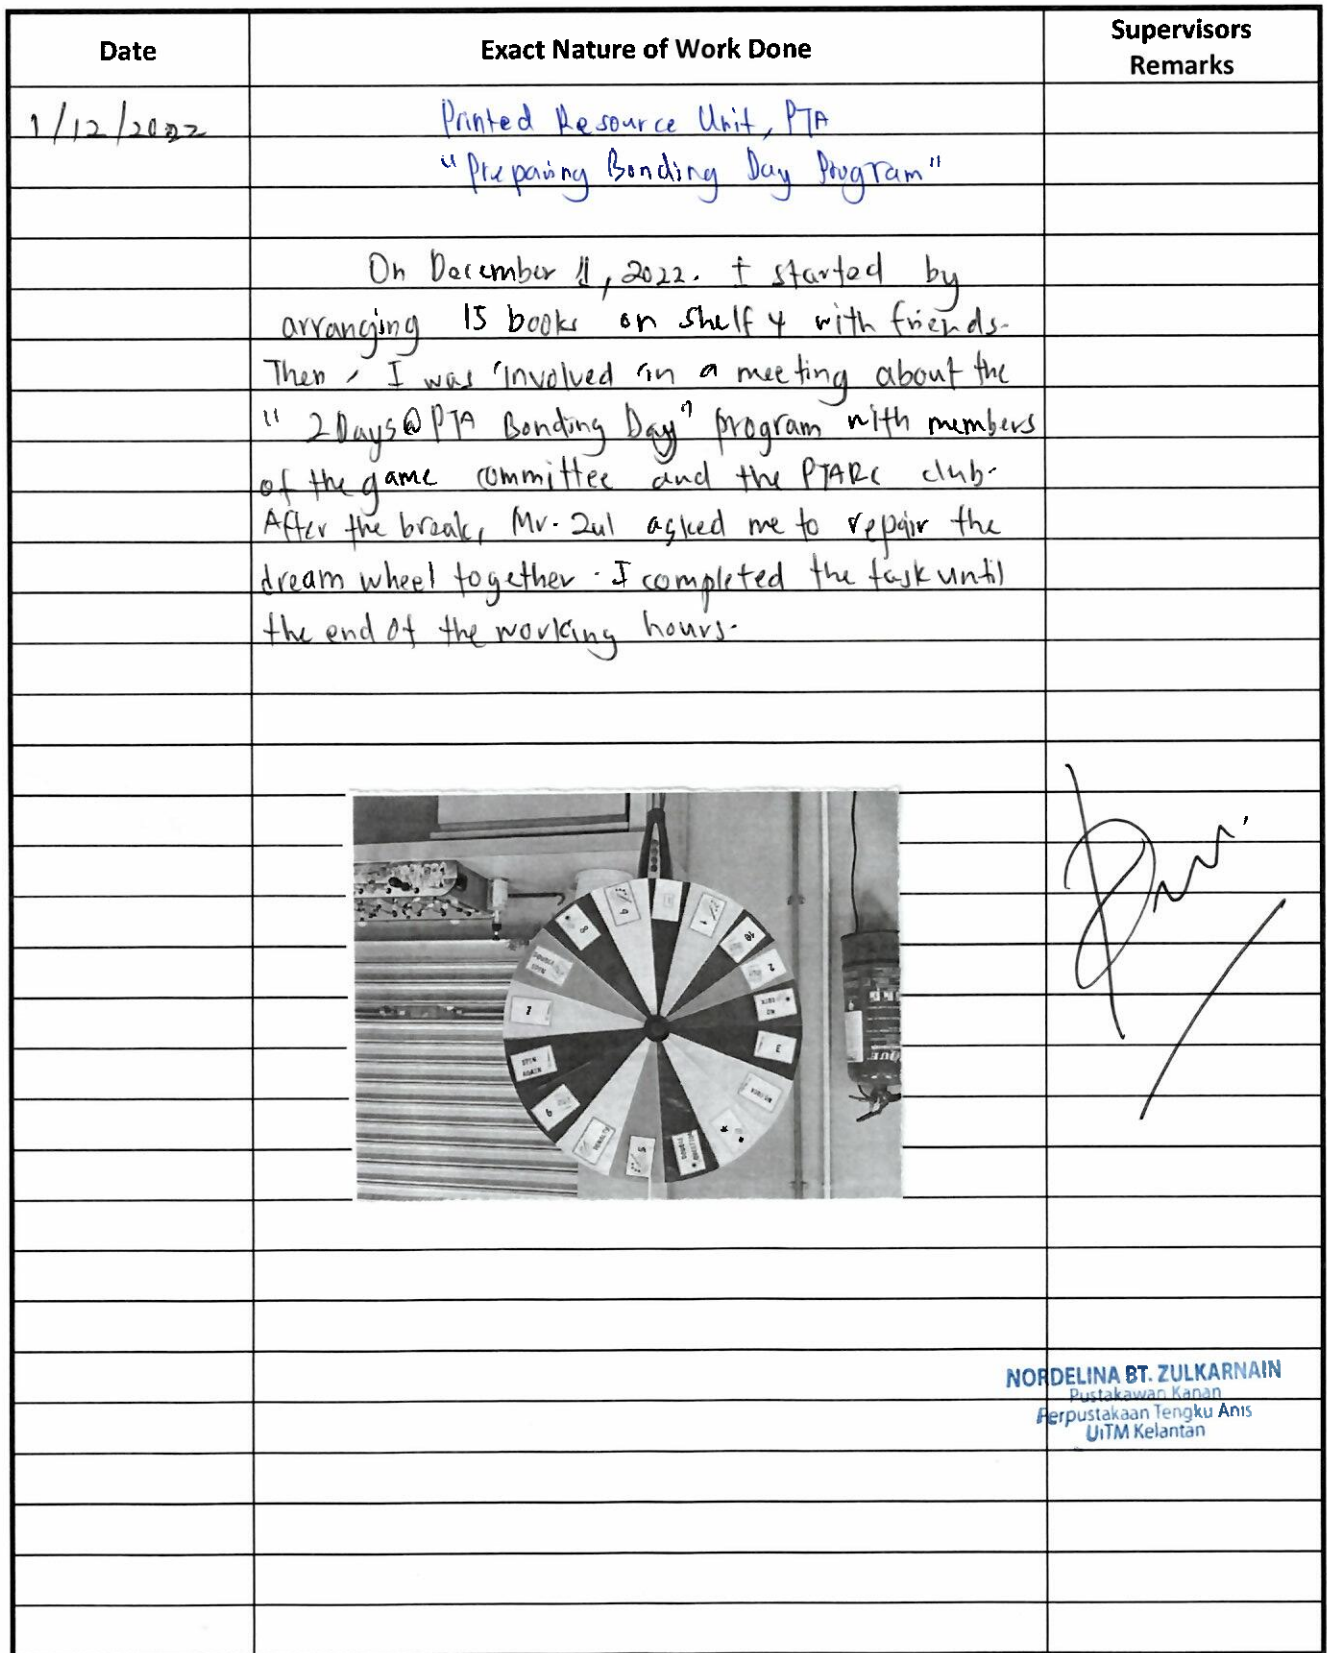 Date
Exact Nature of Work Done
Supervisors
Remarks
1/12/2022
Printed Resource Unit, PTA
"Preparing Bonding Day Program"
On December 1, 2022. I started by
arranging 15 books on shelf 4 with friends.
Then, I was involved in a meeting about the
"2Days@PTA Bonding Day" program with members
of the game committee and the PTARC club.
After the break, Mr. Zul asked me to repair the
dream wheel together. I completed the task until
the end of the working hours.
9
1
8
10
2
3
5
6
NORDELINA BT. ZULKARNAIN
Pustakawan Kanan
Perpustakaan Tengku Anis
UiTM Kelantan